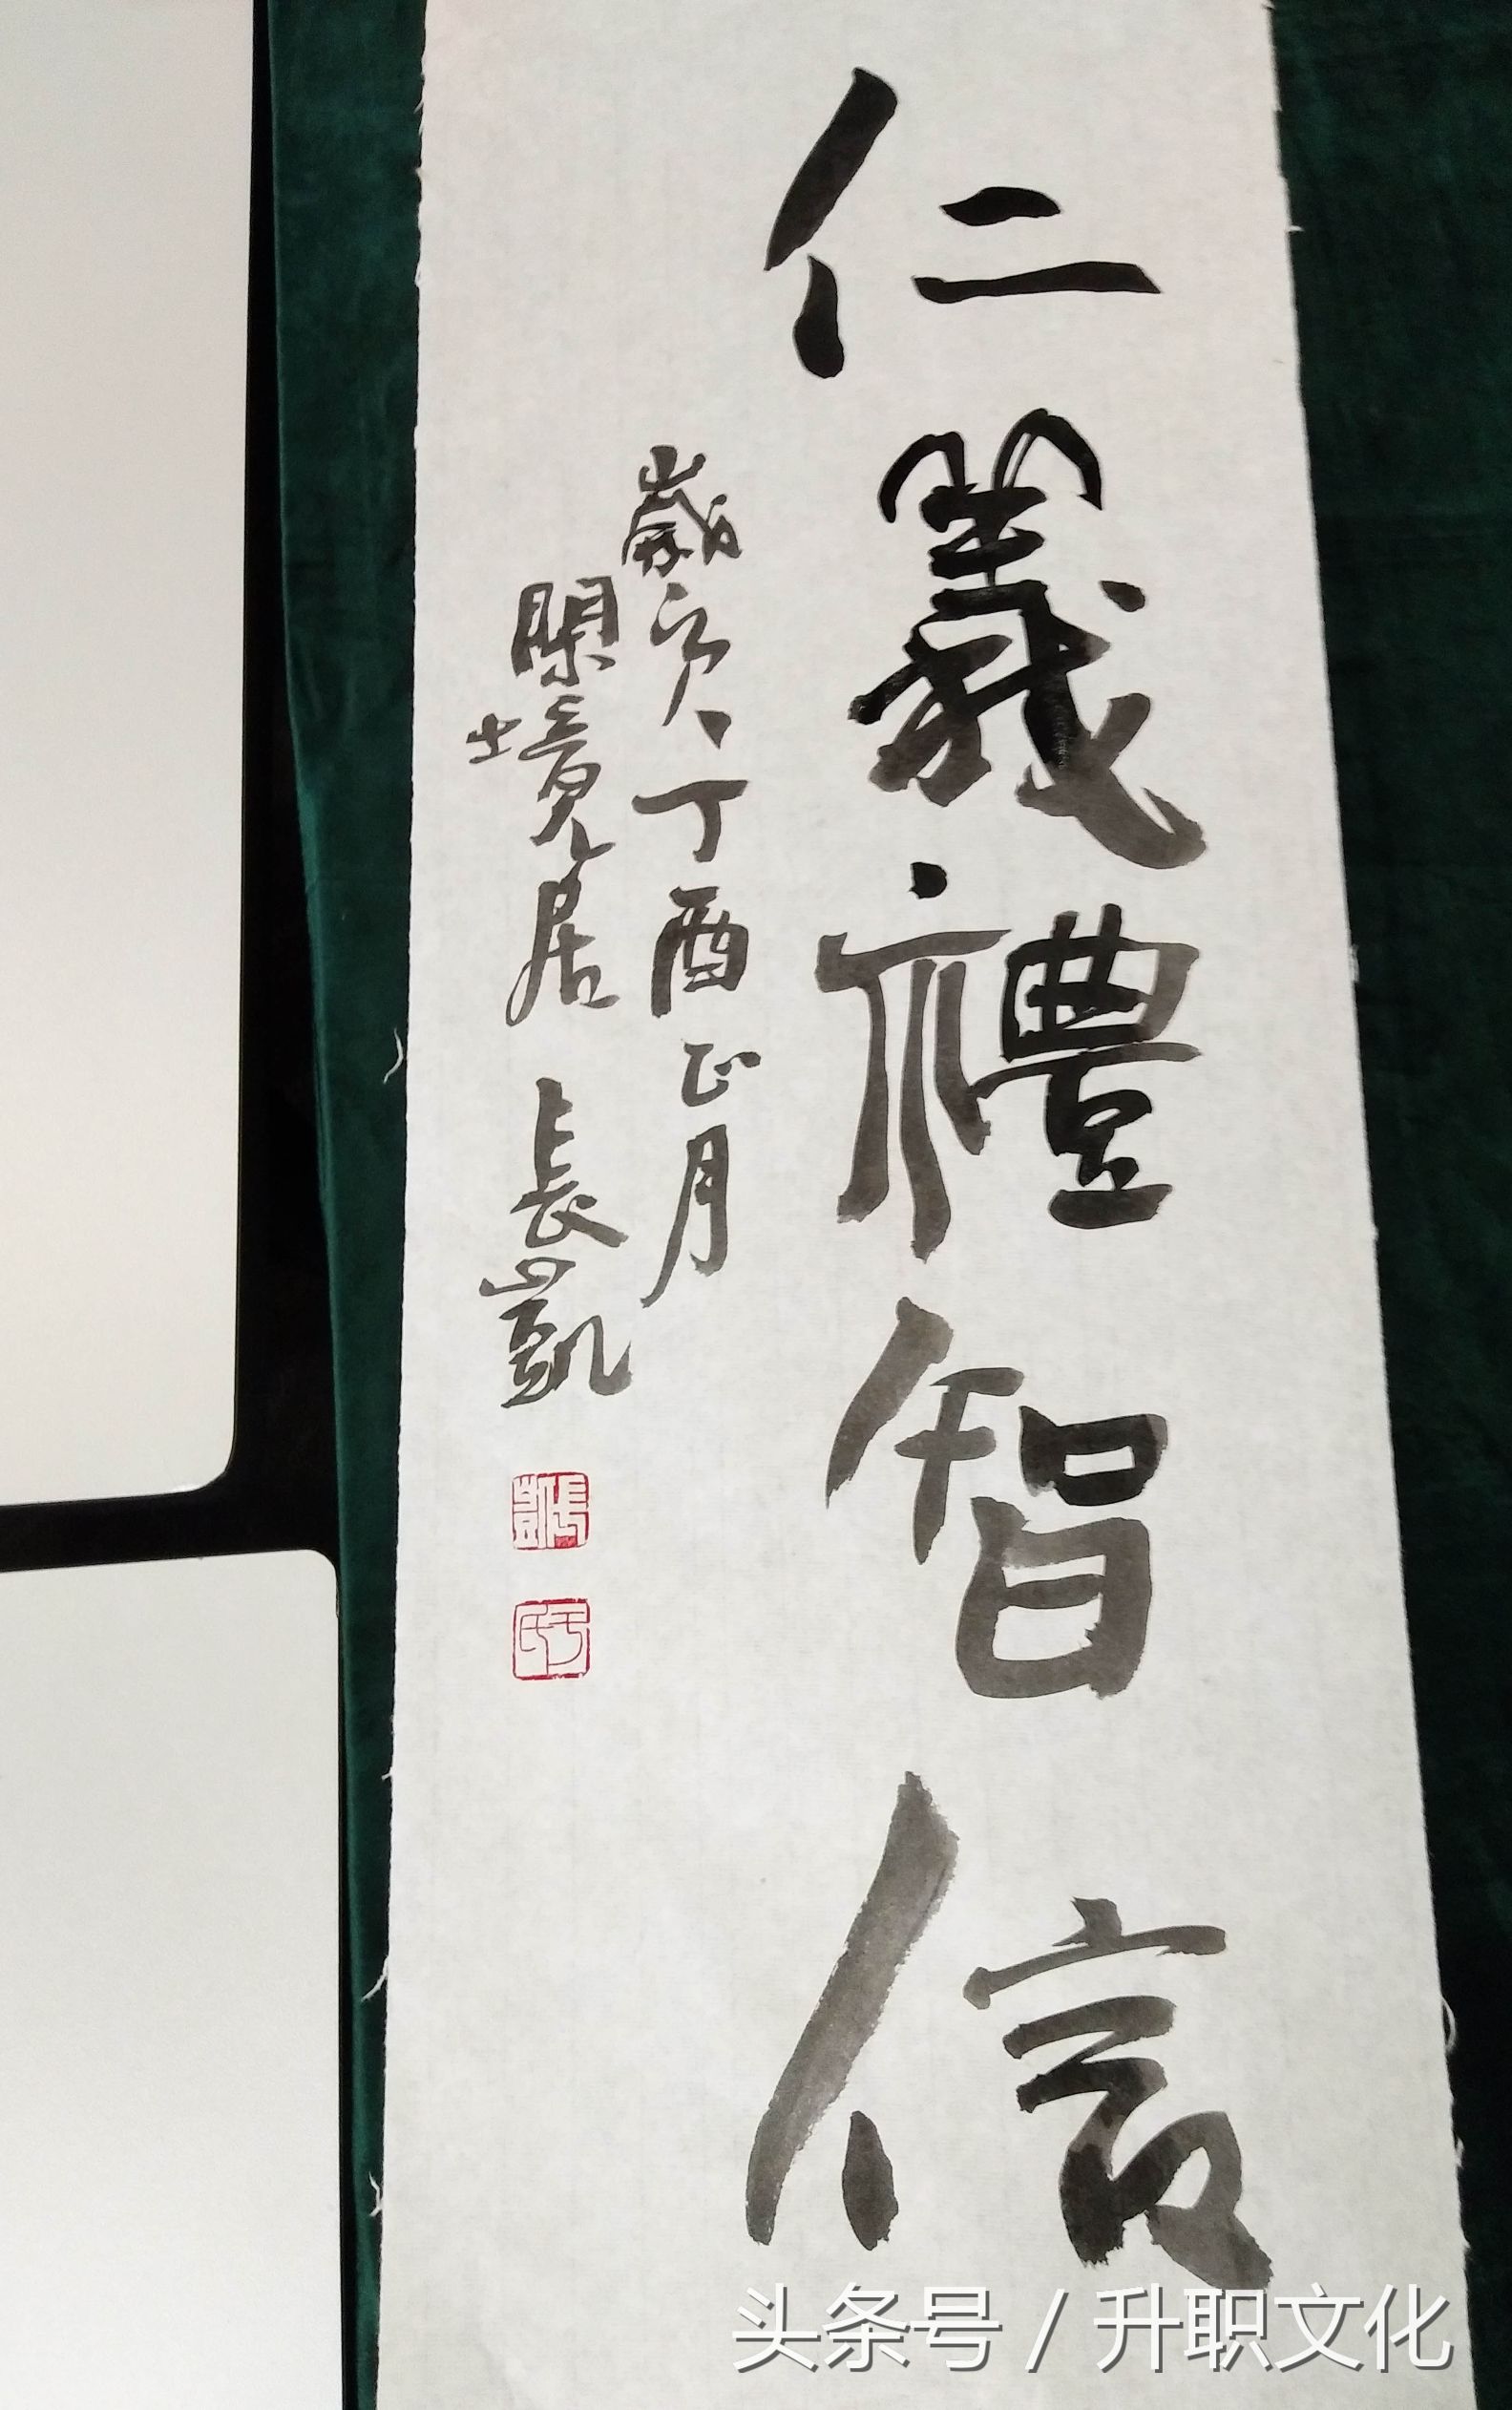 仁義禮智信
歲次丁酉正月
閑境居 長凱
頭条号 / 升职文化